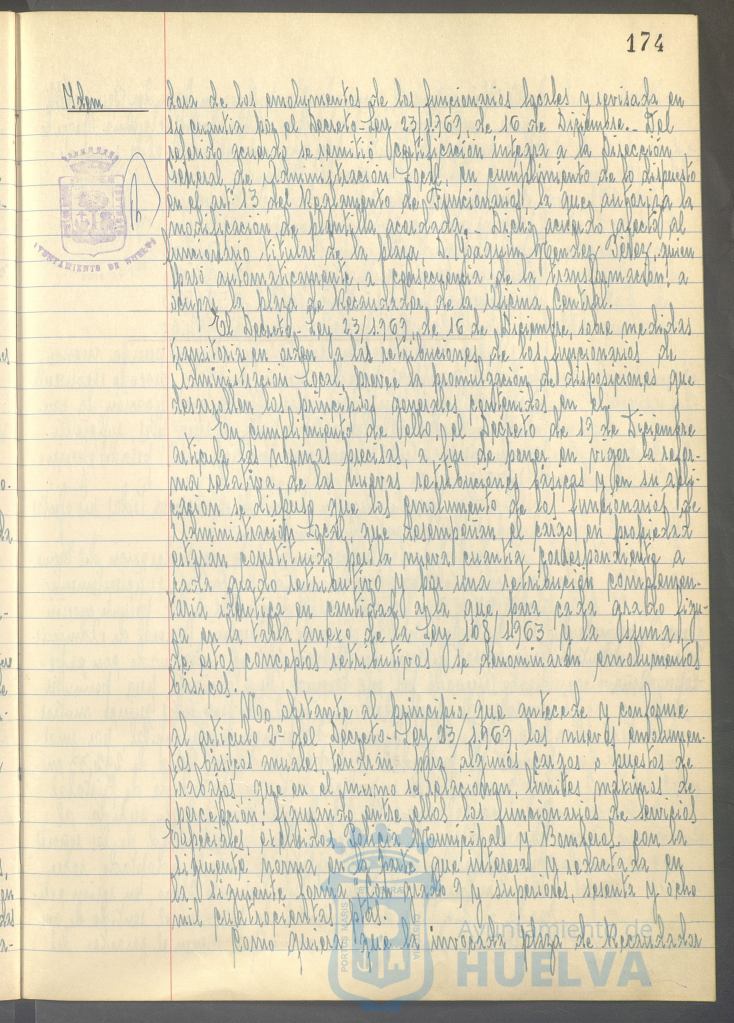 174
Idem
dora de los emolumentos de los funcionarios locales y revisada en
su cuantia por el Decreto-Ley 23/1.969, de 16 de Diciembre.- Del
referido acuerdo se remitió certificación integra a la Dirección
General de Administración Local, en cumplimiento de lo dispuesto
en el artº 13 del Reglamento de Funcionarios la que autoriza la
modificación de plantilla acordada.- Dicho acuerdo afecta al
funcionario titular de la plaza, D. Joaquin Mendez Perez, quien
pasó automaticamente, a consecuencia de la transformación, a
ocupar la plaza de Recaudador de la Oficina Central.
El Decreto-Ley 23/1.969, de 16 de Diciembre, sobre medidas
transitorias en orden a las retribuciones de los funcionarios de
Administración Local, prevee la promulgación de disposiciones que
desarrollen los principios generales contenidos en el.
En cumplimiento de ello, el Decreto de 19 de Diciembre
articula las normas precisas, a fin de poner en vigor la refor-
ma relativa de las nuevas retribuciones básicas y en su apli-
cación se dispuso que los emolumento de los funcionarios de
Administración Local, que desempeñan el cargo en propiedad
estarán constituido por la nueva cuantia correspondiente a
cada grado retributivo y por una retribución complemen-
taria identica en cantidad a la que para cada grado figu-
ra en la tabla anexo de la Ley 108/1.963 y la suma
de estos conceptos retributivos se denominarán emolumentos
básicos.
No obstante al principio que antecede y conforme
al articulo 2º del Decreto-Ley 23/1.969 los nuevos emolumen-
tos básicos anuales tendrán para algunos cargos o puestos de
trabajos, que en el mismo se relacionan, limites máximos de
percepción, figurando entre ellos los funcionarios de Servicios
Especiales, excluidos Policia Municipal y Bomberos, con la
siguiente norma en la parte que interesa y redactada en
la siguiente forma: Con grado 9 y superiores, sesenta y ocho
mil cuatrocientas ptas.
Como quiera que la invocada plaza de Recaudador
AYUNTAMIENTO DE HUELVA
Ayuntamiento de
HUELVA